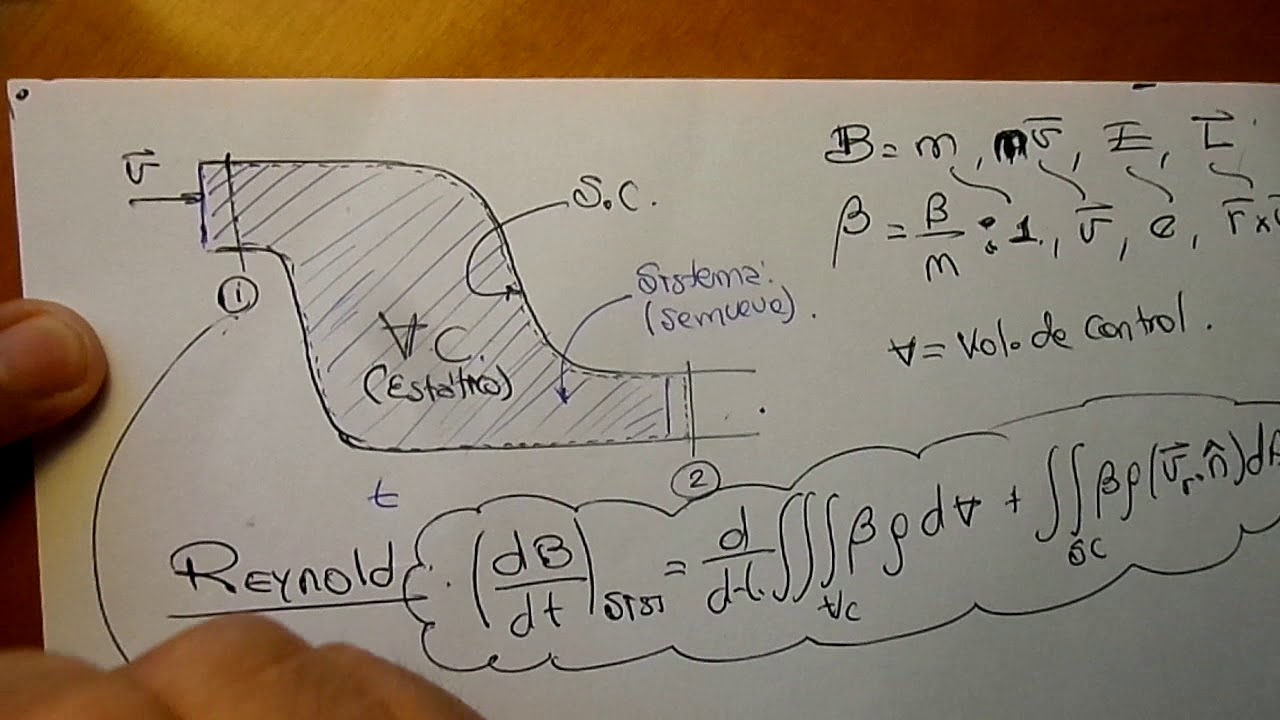 v⃗
S.C.
Sistema:
(semueve).
∀C.
(Estático)
①
②
t
B = m, mv⃗, E, L⃗
β = B/m : 1, v⃗, e, r⃗ x v⃗
∀ = Vol. de Control.
Reynold: (dB/dt)sist = d/dt ∭∀C βρ d∀ + ∬SC βρ(v⃗r·n̂)dA